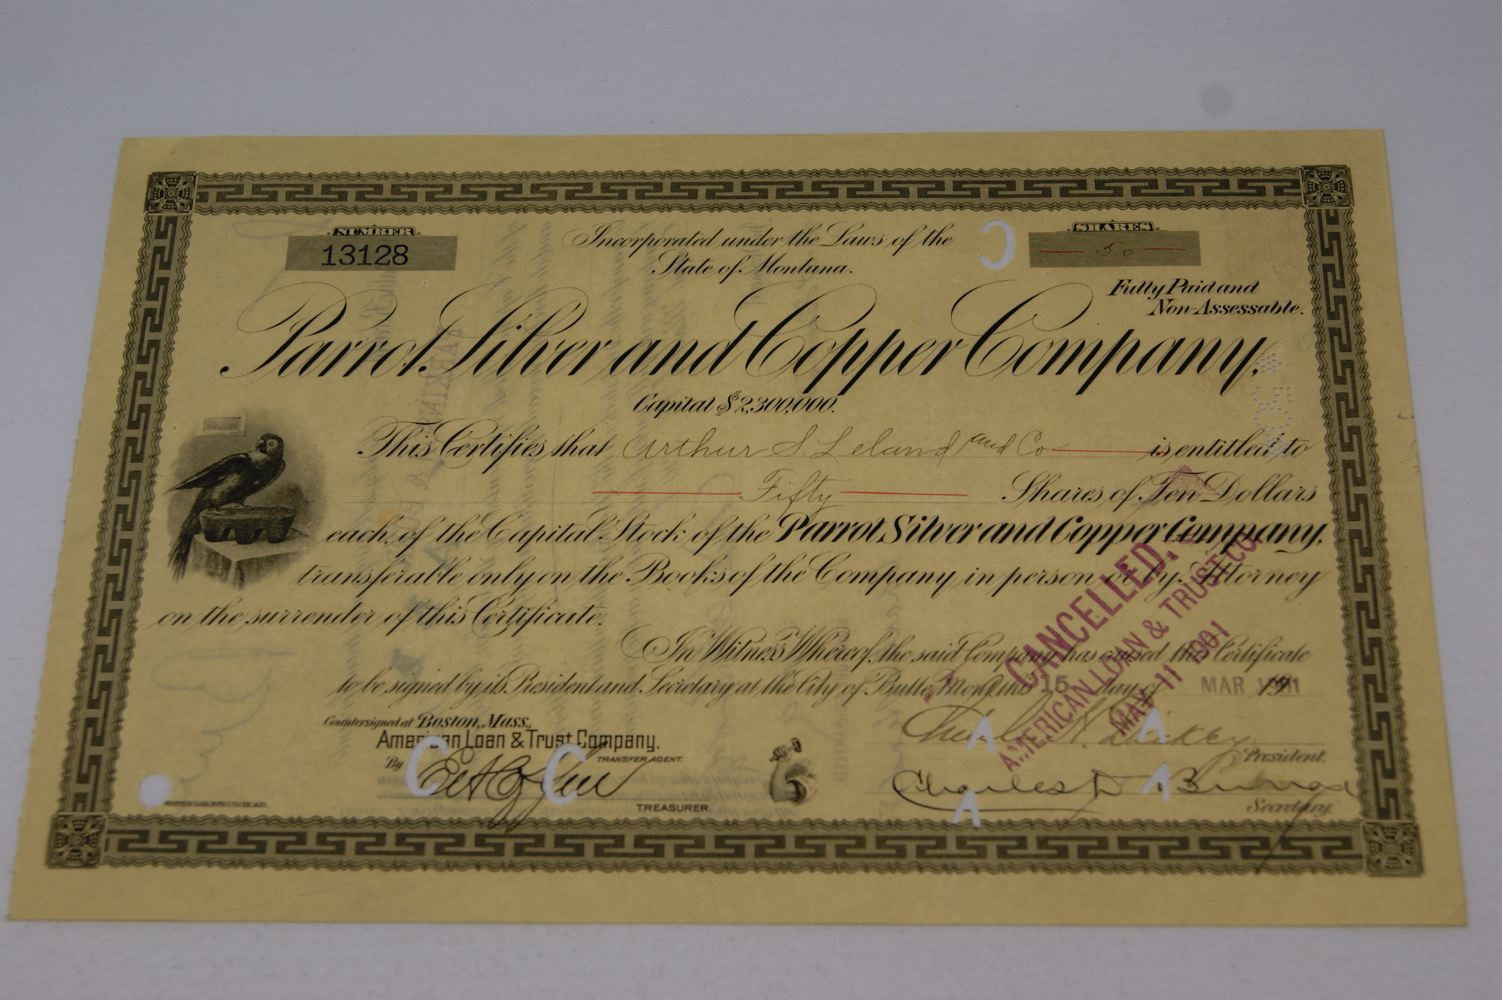 NUMBER
13128
Incorporated under the Laws of the
State of Montana.
SHARES
50
Fully Paid and
Non-Assessable.
Parrot Silver and Copper Company,
Capital $2,300,000.
This Certifies that Arthur S. Leland and Co is entitled to
Fifty Shares of Ten Dollars
each, of the Capital Stock of the Parrot Silver and Copper Company,
transferable only on the Books of the Company in person or by Attorney
on the surrender of this Certificate.
In Witness Whereof, the said Company has caused this Certificate
to be signed by its President and Secretary at the City of Butte, Mont. this 15 day of MAR 1901
Countersigned at Boston, Mass.,
American Loan & Trust Company.
By
TRANSFER AGENT.
TREASURER.
President.
Charles D
Secretary.
CANCELLED.
AMERICAN LOAN & TRUST CO.
MAY 11 1901